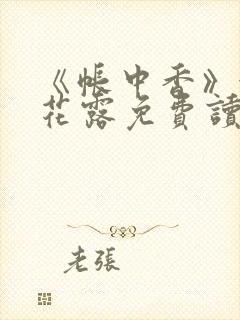 《帳中香》
花露免費讀
老張